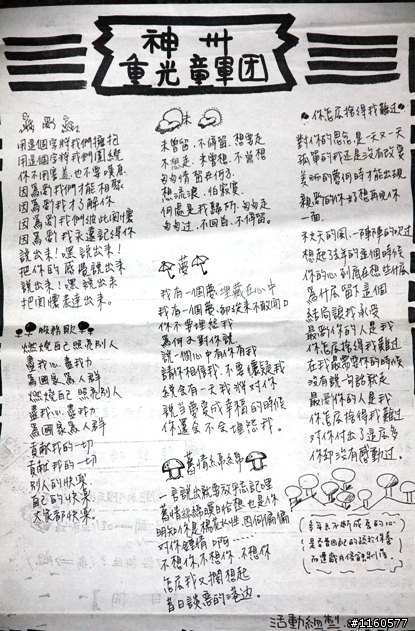 神州
重光童軍团
用這個字將我們擁抱
用這個字將我們圍繞
你不用羞羞也不要嘆息
因為對我們才能相聚
因為對我才了解你
因為對我們彼此關懷
因為對我永遠記得你
說出來!嘿說出來!
把你的感覺說出來
說出來!嘿說出來
把關懷表達出來。
服務歌
燃燒自己照亮別人
盡我心 盡我力
為國家為人群
燃燒自己照亮別人
盡我心 盡我力
為國家為人群
貢獻我的一切
貢獻我的一切
別人的快樂
自己的快樂
大家都快樂
未
未曾留,不停留,想要走
不想走,未曾想,不曾想
匆匆情留在何方
想流浪,怕寂寞
何處是我歸所,匆匆走
匆匆过,不回首,不停留。
夢
我有一個夢,埋藏在心中
我有一個夢,卻從來不敢開口
你不要埋怨我
為何不對你說
說一個心中有你有我
請你相信我,不要懷疑我
總會有一天我將对你
說當夢變成幸福的時候
你還会不会埋怨我。
舊情綿綿
一言說出就要放乎忘記哩
舊情綿綿暝日恰想也是你
明知你是楊花水性因何偏偏
对你鍾情 啊……
不想你,不想你,不想你
怎麼我又擱想起
昔日談戀的港边
你怎麼捨得我難过
對你的思念是一天又一天
孤單的我还是沒有改変
美丽的夢何時才能出現
親愛的你好想再見你
一面
秋天的風一陣陣的吹过
想起了去年的這個時候
你的心到底在想些什麼
為什麼留下這個
結局讓我承受
最愛你的人是我
你怎麼捨得我難过
在我最需要你的時候
沒有說一句話就走
最愛你的人是我
你怎麼捨得我難过
对你付出了這麼多
你卻沒有感動过。
活動組製
#1160577